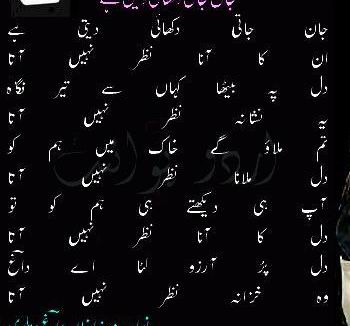 جان جاتی دکھائی دیتی ہے
ان کا آنا نظر نہیں آتا
دل پہ بیٹھا کہاں سے تیر نگاہ
یہ نشانہ نظر نہیں آتا
تم ملاؤ گے خاک میں ہم کو
دل ملانا نظر نہیں آتا
آپ ہی دیکھتے ہی ہم کو تو
دل کا آنا نظر نہیں آتا
دل پُر آرزو لٹا اے داغ
وہ خزانہ نظر نہیں آتا